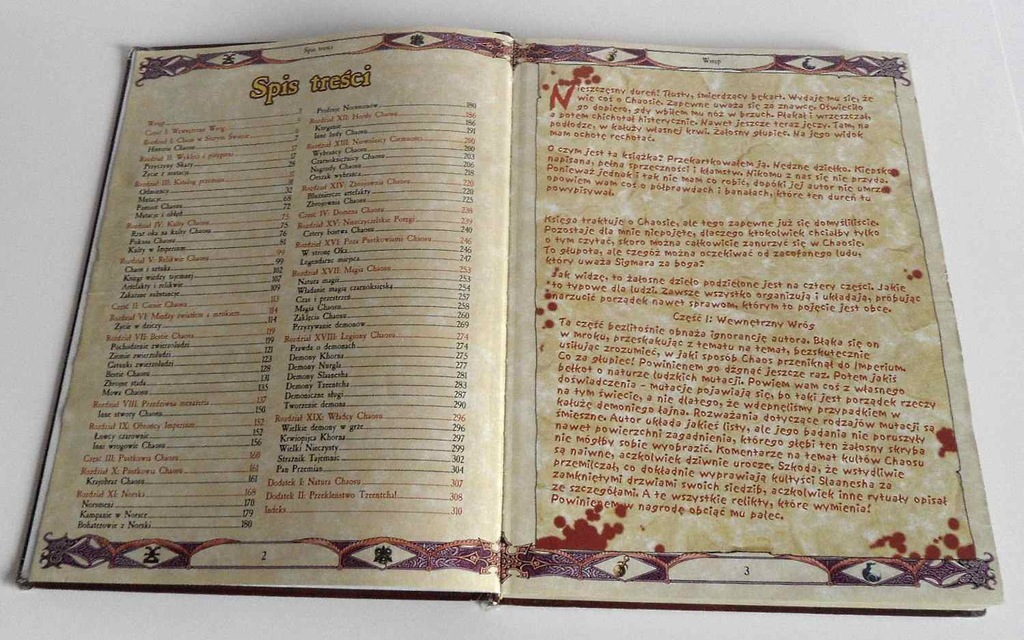 Spis treści
Spis treści
Wstęp 3
Część I: Wewnętrzny Wróg
Rozdział I: Chaos w Starym Świecie
Historia Chaosu
Rozdział II: Wykleci i potępieni 17
Przyczyny Skazy
Życie z mutacją
Rozdział III: Katalog przemian
Odmieńcy 32
Mutacje 68
Piętno Chaosu 72
Mutacje i obłęd
Rozdział IV: Kulty Chaosu 75
Rzut oka na kulty Chaosu 76
Pokusa Chaosu 81
Kulty w Imperium
Rozdział V: Relikwie Chaosu 99
Chaos i sztuka 99
Księgi wiedzy tajemnej 102
Artefakty i relikwie 107
Zakazane substancje 109
Część II: Cienie Chaosu 113
Rozdział VI: Między światłem i mrokiem 114
Życie w dziczy 114
Rozdział VII: Bestie Chaosu 119
Pochodzenie zwierzoludzi 119
Ziemie zwierzoludzi 121
Gatunki zwierzoludzi 123
Bestie Chaosu 128
Zbrojne stada 131
Mowa Chaosu 135
Rozdział VIII: Przedziwna menażeria 137
Inne stwory Chaosu 150
Rozdział IX: Obrońcy Imperium 152
Łowcy czarownic 152
Inni wrogowie Chaosu 156
Część III: Pustkowia Chaosu 160
Rozdział X: Pustkowia Chaosu 161
Krajobraz Chaosu 161
Rozdział XI: Norska 168
Norsmeni 170
Kampanie w Norsce 179
Bohaterowie z Norski 180
Profesje Norsmenów 180
Rozdział XII: Hordy Chaosu 186
Kurganie 186
Inne ludy Chaosu 191
Rozdział XIII: Niewolnicy Ciemności 200
Wybrańcy Chaosu 200
Czarnoksiężnicy Chaosu 203
Nagrody Chaosu 206
Orszak wybrańca 218
Rozdział XIV: Zbrojownia Chaosu 220
Bluźniercze artefakty 220
Zbrojownia Chaosu 225
Część IV: Domena Chaosu 238
Rozdział XV: Niszczycielskie Potęgi 239
Cztery bóstwa Chaosu 240
Rozdział XVI: Poza Pustkowiami Chaosu 246
W stronę Oka 246
Legendarne miejsca 247
Rozdział XVII: Magia Chaosu 253
Natura magii 253
Władanie magią czarnoksięską 254
Czas i przestrzeń 257
Magia Chaosu 258
Zaklęcia Chaosu 260
Przyzywanie demonów 269
Rozdział XVIII: Legiony Chaosu 274
Prawda o demonach 274
Demony Khorna 275
Demony Nurgla 277
Demony Slaanesha 281
Demony Tzeentcha 283
Demoniczne sługi 287
Tworzenie demona 290
Rozdział XIX: Władcy Chaosu 296
Wielkie demony w grze 296
Krwiopijca Khorna 297
Wielki Nieczysty 299
Strażnik Tajemnic 302
Pan Przemian 304
Dodatek I: Natura Chaosu 307
Dodatek II: Przekleństwo Tzeentcha! 308
Indeks 310
2
Wstęp
Nieszczęsny dureń! Tłusty, śmierdzący bękart. Wydaje mu się, że
wie coś o Chaosie. Zapewne uważa się za znawcę. Oświeciło
go dopiero, gdy wbiłem mu nóż w brzuch. Płakał i wrzeszczał,
a potem chichotał histerycznie. Nawet jeszcze teraz jęczy. Tam, na
podłodze, w kałuży własnej krwi. Żałosny głupiec. Na jego widok
mam ochotę rechotać.
O czym jest ta książka? Przekartkowałem ją. Nędzne dziełko. Kiepsko
napisana, pełna sprzeczności i kłamstw. Nikomu z nas się nie przyda.
Ponieważ jednak i tak nie mam co robić, dopóki jej autor nie umrze
opowiem wam coś o półprawdach i banałach, które ten dureń tu
powypisywał.
Księga traktuje o Chaosie, ale tego zapewne już się domyśliliście.
Pozostaje dla mnie niepojęte, dlaczego ktokolwiek chciałby tylko
o tym czytać, skoro można całkowicie zanurzyć się w Chaosie.
To głupota, ale czegóż można oczekiwać od zacofanego ludu,
który uważa Sigmara za boga?
Jak widzę, to żałosne dzieło podzielone jest na cztery części. Jakie
to typowe dla ludzi. Zawsze wszystko organizują i układają, próbując
narzucić porządek nawet sprawom, którym to pojęcie jest obce.
Część I: Wewnętrzny Wróg
Ta część bezlitośnie obnaża ignorancję autora. Błąka się on
w mroku, przeskakując z tematu na temat, bezskutecznie
usiłując zrozumieć, w jaki sposób Chaos przeniknął do Imperium.
Co za głupiec! Powinienem go dźgnąć jeszcze raz. Potem jakiś
bełkot o naturze ludzkich mutacji. Powiem wam coś z własnego
doświadczenia - mutacje pojawiają się, bo taki jest porządek rzeczy
na tym świecie, a nie dlatego, że wdepnęliśmy przypadkiem w
kałużę demoniego łajna. Rozważania dotyczące rodzajów mutacji są
śmieszne. Autor układa jakieś listy, ale jego badania nie poruszyły
nawet powierzchni zagadnienia, którego głębi ten żałosny skryba
nie mógłby sobie wyobrazić. Komentarze na temat kultów Chaosu
są naiwne, aczkolwiek dziwnie urocze. Szkoda, że wstydliwie
przemilczał, co dokładnie wyprawiają kultyści Slaanesha za
zamkniętymi drzwiami swoich siedzib, aczkolwiek inne rytuały opisał
ze szczegółami. A te wszystkie relikty, które wymienia!
Powinienem w nagrodę obciąć mu palec.
3